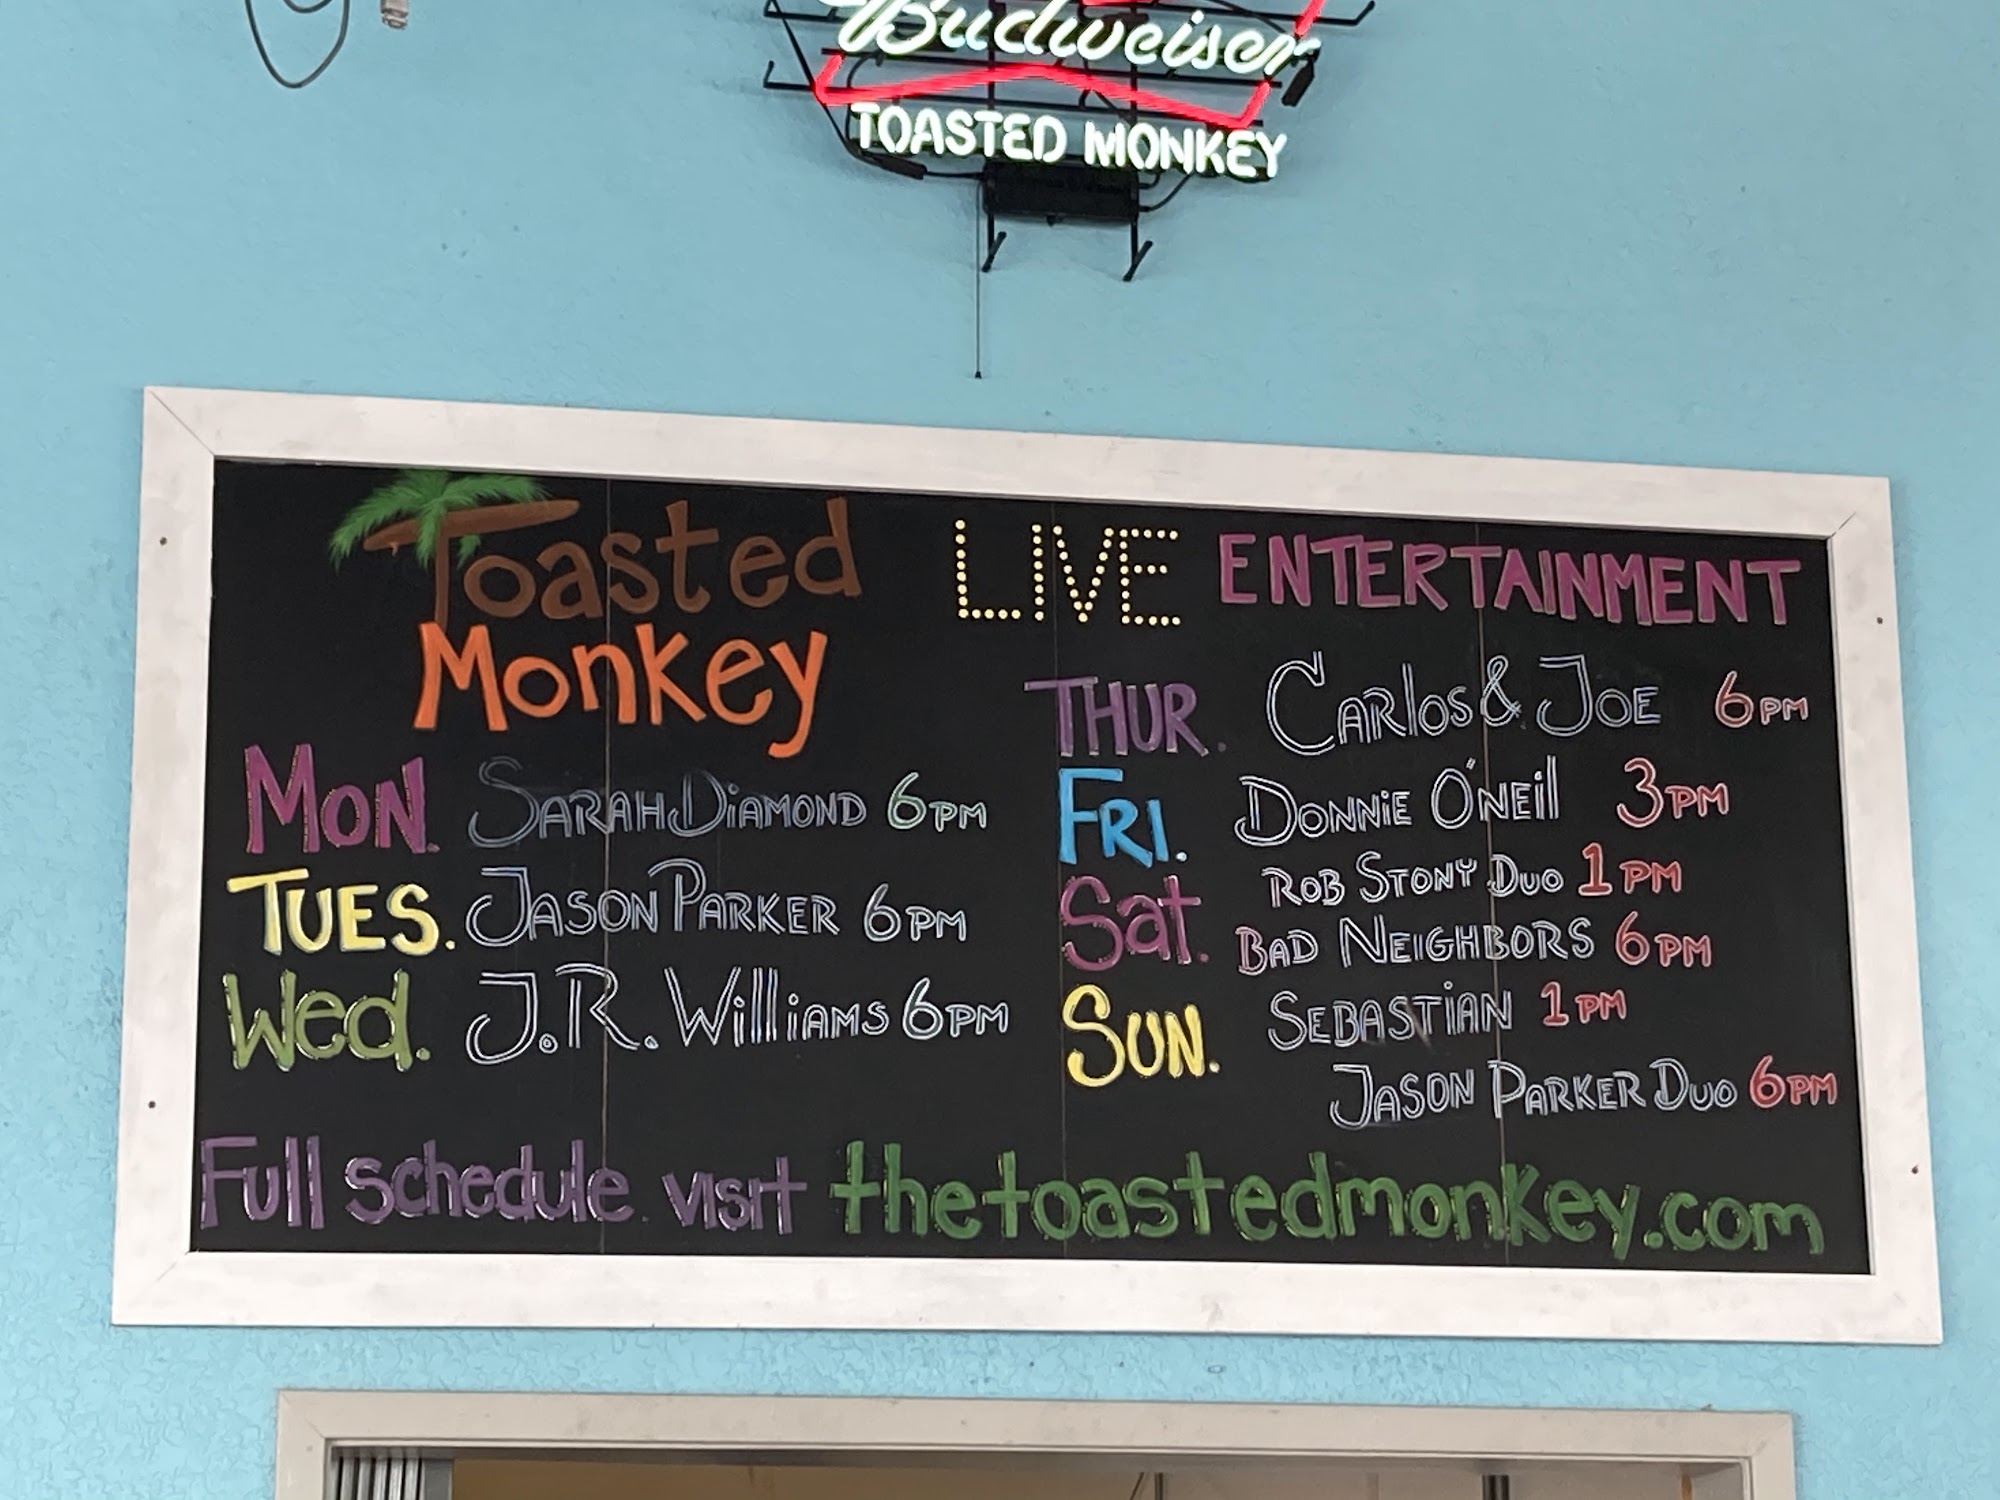 Budweiser
TOASTED MONKEY
Toasted
Monkey
LIVE ENTERTAINMENT
MON. SARAH DIAMOND 6PM
TUES. JASON PARKER 6PM
Wed. J.R. Williams 6PM
THUR. CARlos & JOE 6PM
FRI. DONNiE O'NEil 3PM
Sat. ROB STONY DUO 1PM
BAD NEIGHBORS 6PM
SUN. SEBASTiAN 1PM
JASON PARKER DUO 6PM
Full schedule visit thetoastedmonkey.com